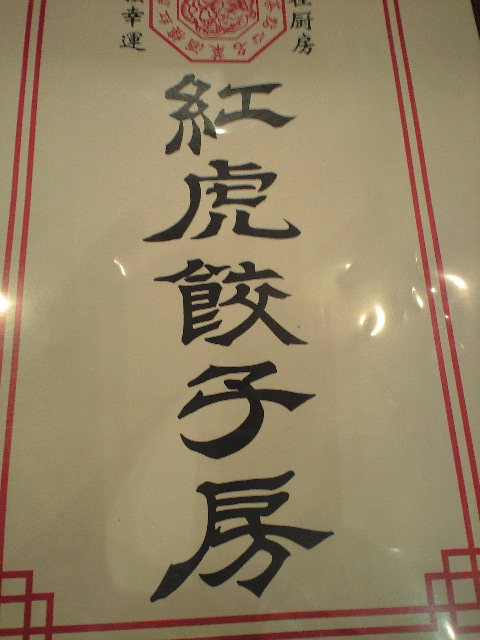 在厨房
幸運
紅虎餃子房